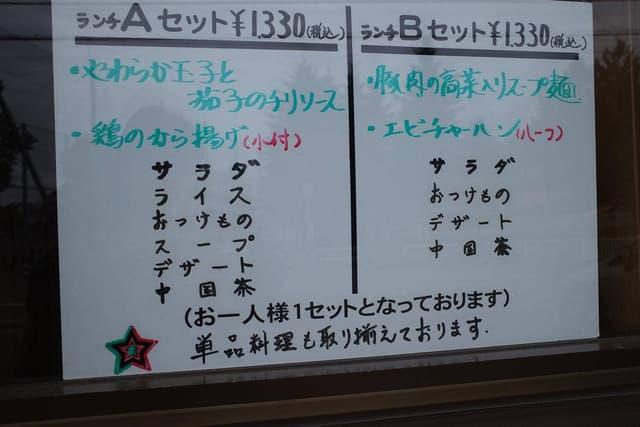 ランチAセット¥1,330(税込)
・やわらか玉子と
茄子のチリソース
・鶏のから揚げ(小付)
サラダ
ライス
おつけもの
スープ
デザート
中国茶
ランチBセット¥1,330(税込)
・豚肉の高菜入りスープ麺
・エビチャーハン(ハーフ)
サラダ
おつけもの
デザート
中国茶
(お一人様1セットとなっております)
単品料理も取り揃えております.